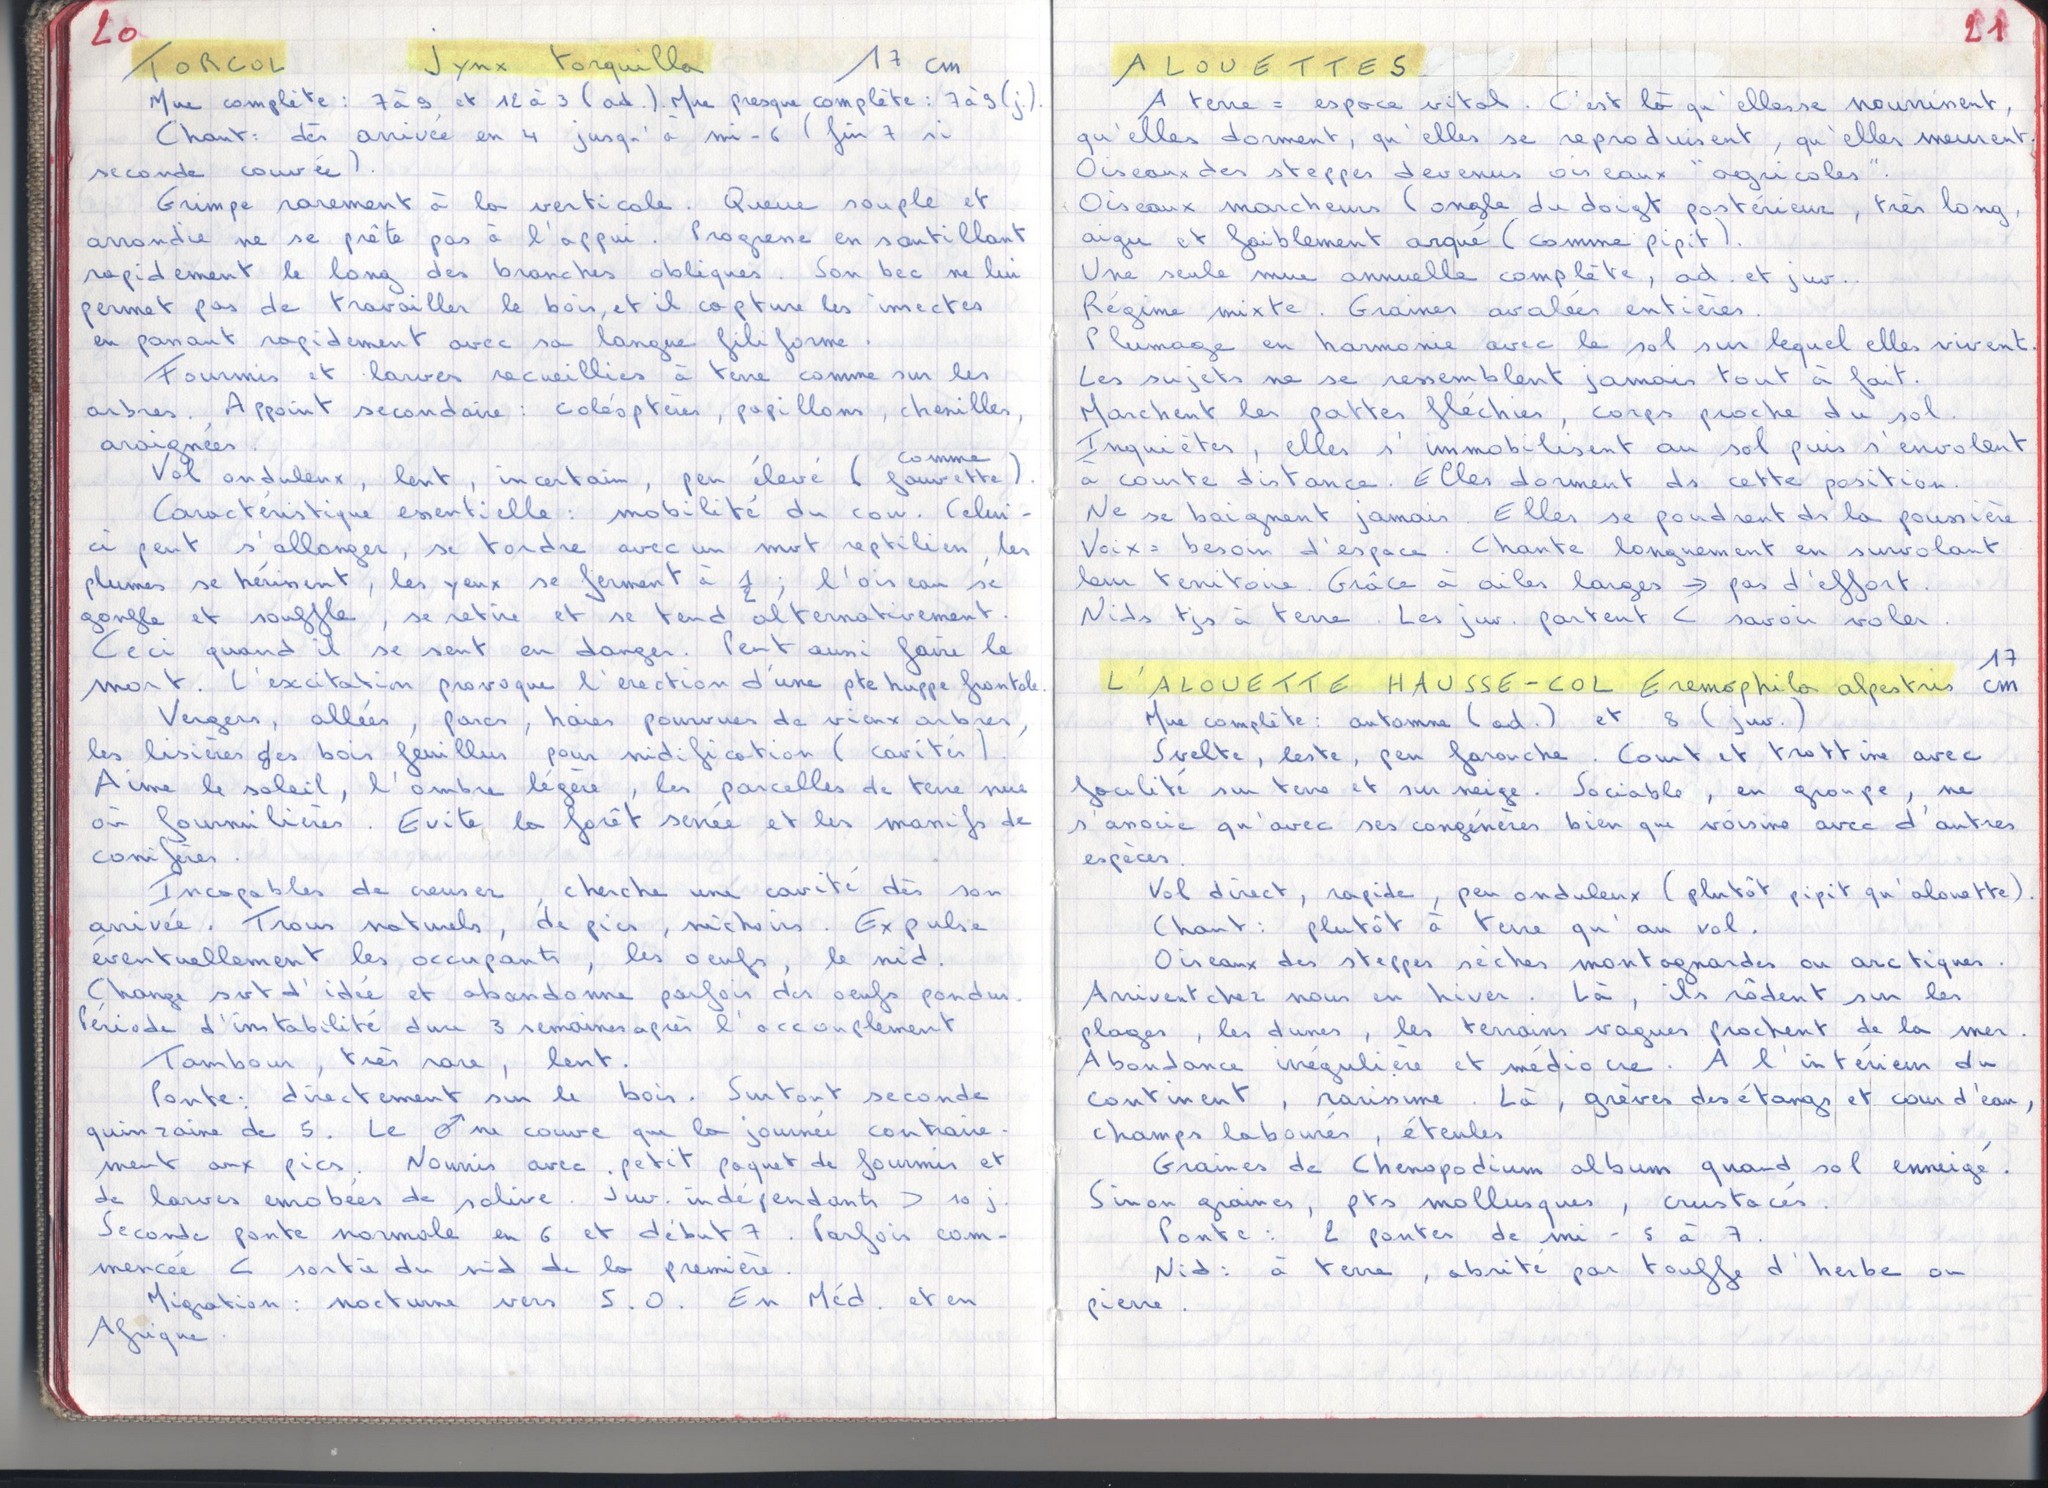 20
TORCOL Jynx torquilla 17 cm
Mue complète : 7 à 9 et 12 à 3 (ad.). Mue presque complète : 7 à 9 (j.).
Chant : dès arrivée en 4 jusqu'à mi-6 (fin 7 si
seconde couvée).
Grimpe rarement à la verticale. Queue souple et
arrondie ne se prête pas à l'appui. Progresse en sautillant
rapidement le long des branches obliques. Son bec ne lui
permet pas de travailler le bois, et il capture les insectes
en passant rapidement avec sa langue filiforme.
Fourmis et larves recueillies à terre comme sur les
arbres. Appoint secondaire : coléoptères, papillons, chenilles,
araignées.
Vol onduleux, lent, incertain, peu élevé (comme fauvette).
Caractéristique essentielle : mobilité du cou. Celui-
ci peut s'allonger, se tordre avec un mvt reptilien, les
plumes se hérissent, les yeux se ferment à 1/2 ; l'oiseau se
gonfle et souffle, se retire et se tend alternativement.
Ceci quand il se sent en danger. Peut aussi faire le
mort. L'excitation provoque l'érection d'une pte huppe frontale.
Vergers, allées, parcs, haies pourvues de vieux arbres,
les lisières des bois feuillus pour nidification (cavités).
Aime le soleil, l'ombre légère, les parcelles de terre nue
où fourmilières. Evite la forêt serrée et les massifs de
conifères.
Incapables de creuser, cherche une cavité dès son
arrivée. Trous naturels, de pics, nichoirs. Expulse
éventuellement les occupants, les oeufs, le nid.
Change svt d'idée et abandonne parfois des oeufs pondus.
Période d'instabilité dure 3 semaines après l'accouplement
Tambour, très rare, lent.
Ponte : directement sur le bois. Surtout seconde
quinzaine de 5. Le ♂ ne couve que la journée contraire-
ment aux pics. Nourris avec petit paquet de fourmis et
de larves enrobées de salive. Juv. indépendants > 10 j.
Seconde ponte normale en 6 et début 7. Parfois com-
mencée < sortie du nid de la première.
Migration : nocturne vers S.O. En Méd. et en
Afrique.
21
ALOUETTES
A terre = espace vital. C'est là qu'elles se nourrissent,
qu'elles dorment, qu'elles se reproduisent, qu'elles meurent.
Oiseaux des steppes devenus oiseaux "agricoles".
Oiseaux marcheurs (ongle du doigt postérieur, très long,
aigu et faiblement arqué (comme pipit).
Une seule mue annuelle complète, ad. et juv..
Régime mixte. Graines avalées entières.
Plumage en harmonie avec le sol sur lequel elles vivent.
Les sujets ne se ressemblent jamais tout à fait.
Marchent les pattes fléchies, corps proche du sol.
Inquiètes, elles s'immobilisent au sol puis s'envolent
à courte distance. Elles dorment ds cette position.
Ne se baignent jamais. Elles se poudrent ds la poussière.
Voix = besoin d'espace. Chante longuement en survolant
leur territoire. Grâce à ailes larges → pas d'effort.
Nids tjs à terre. Les juv. partent < savoir voler.
L'ALOUETTE HAUSSE-COL Eremophila alpestris 17 cm
Mue complète : automne (ad.) et 8 (juv.)
Svelte, leste, peu farouche. Court et trottine avec
facilité sur terre et sur neige. Sociable, en groupe, ne
s'associe qu'avec ses congénères bien que voisine avec d'autres
espèces.
Vol direct, rapide, peu onduleux (plutôt pipit qu'alouette).
Chant : plutôt à terre qu'au vol.
Oiseaux des steppes sèches montagnardes ou arctiques.
Arrivent chez nous en hiver. Là, ils rôdent sur les
plages, les dunes, les terrains vagues prochent de la mer.
Abondance irrégulière et médiocre. A l'intérieur du
continent, rarissime. Là, grèves des étangs et cour d'eau,
champs labourés, éteules
Graines de Chenopodium album quand sol enneigé.
Sinon graines, pts mollusques, crustacés.
Ponte : 2 pontes de mi-5 à 7.
Nid : à terre, abrité par touffe d'herbe ou
pierre.